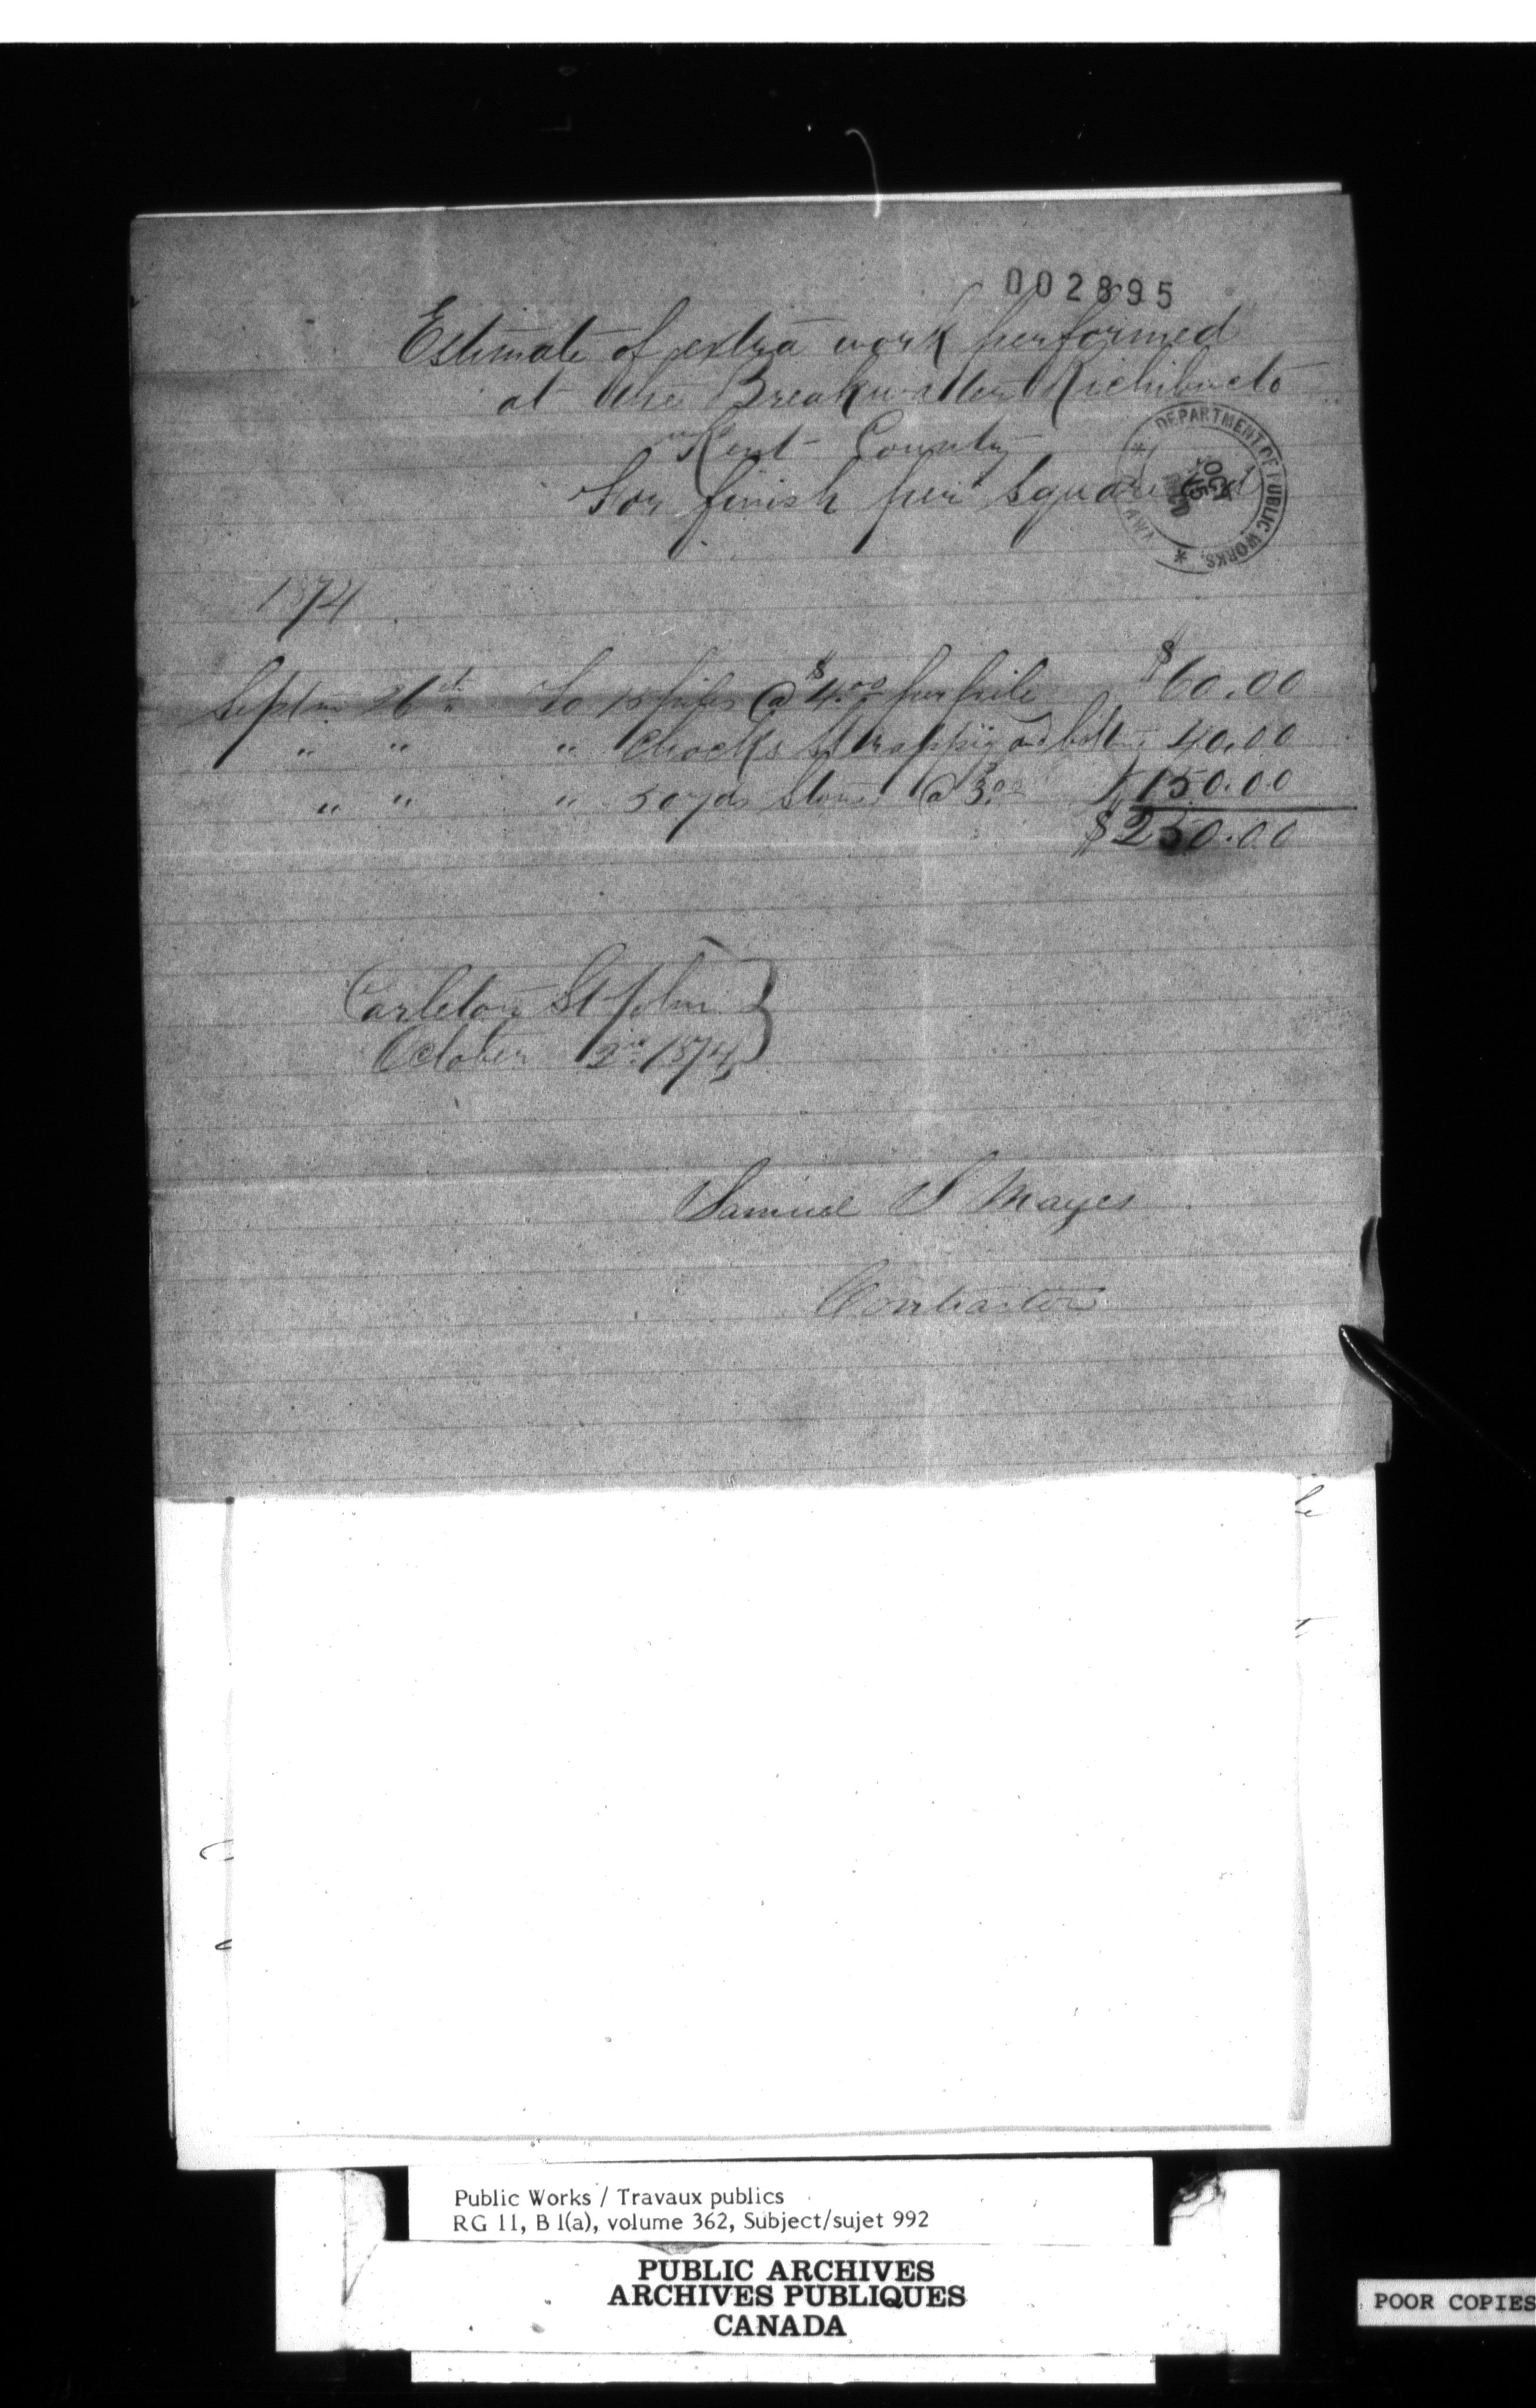 002895
Estimate of extra work performed
at the Breakwater Richibucto
Kent County
For finish per Square
DEPARTMENT OF PUBLIC WORKS.
OCT
1874
Septm 26th To 15 piles @ $4.00 per pile $60.00
" " " Chocks Strapping and bolting 40.00
" " " 50 yds Stone @ 3.00 $150.00
$250.00
Carleton St John
October 2nd 1874
Samuel S Mayes
Contractor
Public Works / Travaux publics
RG 11, B 1(a), volume 362, Subject/sujet 992
PUBLIC ARCHIVES
ARCHIVES PUBLIQUES
CANADA
POOR COPIES